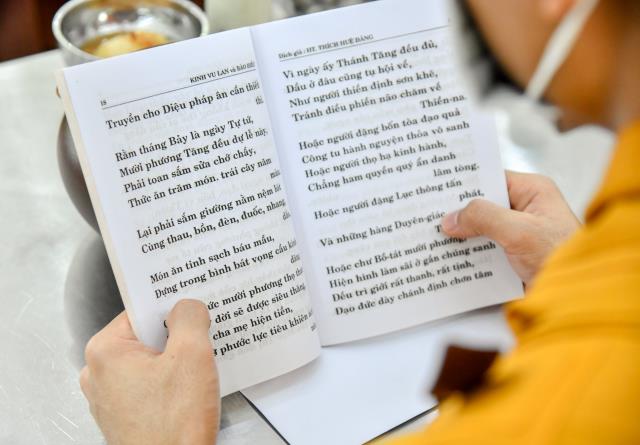 18
KINH VU LAN và báo hiếu
Truyền cho Diệu pháp ân cần thiết
thi,
Rằm tháng Bảy là ngày Tự tứ,
Mười phương Tăng đều dự lễ này,
Phải toan sắm sửa chớ chầy,
Thức ăn trăm món, trái cây năm
màu.
Lại phải sắm giường nằm nệm lót
Cùng thau, bồn, đèn, đuốc, nhang,
Món ăn tinh sạch báu mầu,
Đựng trong bình bát vọng cầu kính
dâng
mười phương thọ thực
đời sẽ được siêu thăng
cha mẹ hiện tiền,
phước lực tiêu khiên
Dịch giả : HT. THÍCH HUỆ ĐĂNG
Vì ngày ấy Thánh Tăng đều đủ,
Dầu ở đâu cũng tụ hội về,
Như người thiền định sơn khê,
Tránh điều phiền não chăm về
Thiền-na.
Hoặc người đặng bốn tòa đạo quả
Công tu hành nguyện thỏa vô sanh
Hoặc người thọ hạ kinh hành,
Chẳng ham quyền quý ẩn danh
lâm tòng.
Hoặc người đặng Lục thông tấn
phát,
Và những hàng Duyên-giác
Hoặc chư Bồ-tát mười phương,
Hiện hình làm sãi ở gần chúng sanh
Đều trì giới rất thanh, rất tịnh,
Đạo đức dày chánh định chơn tâm